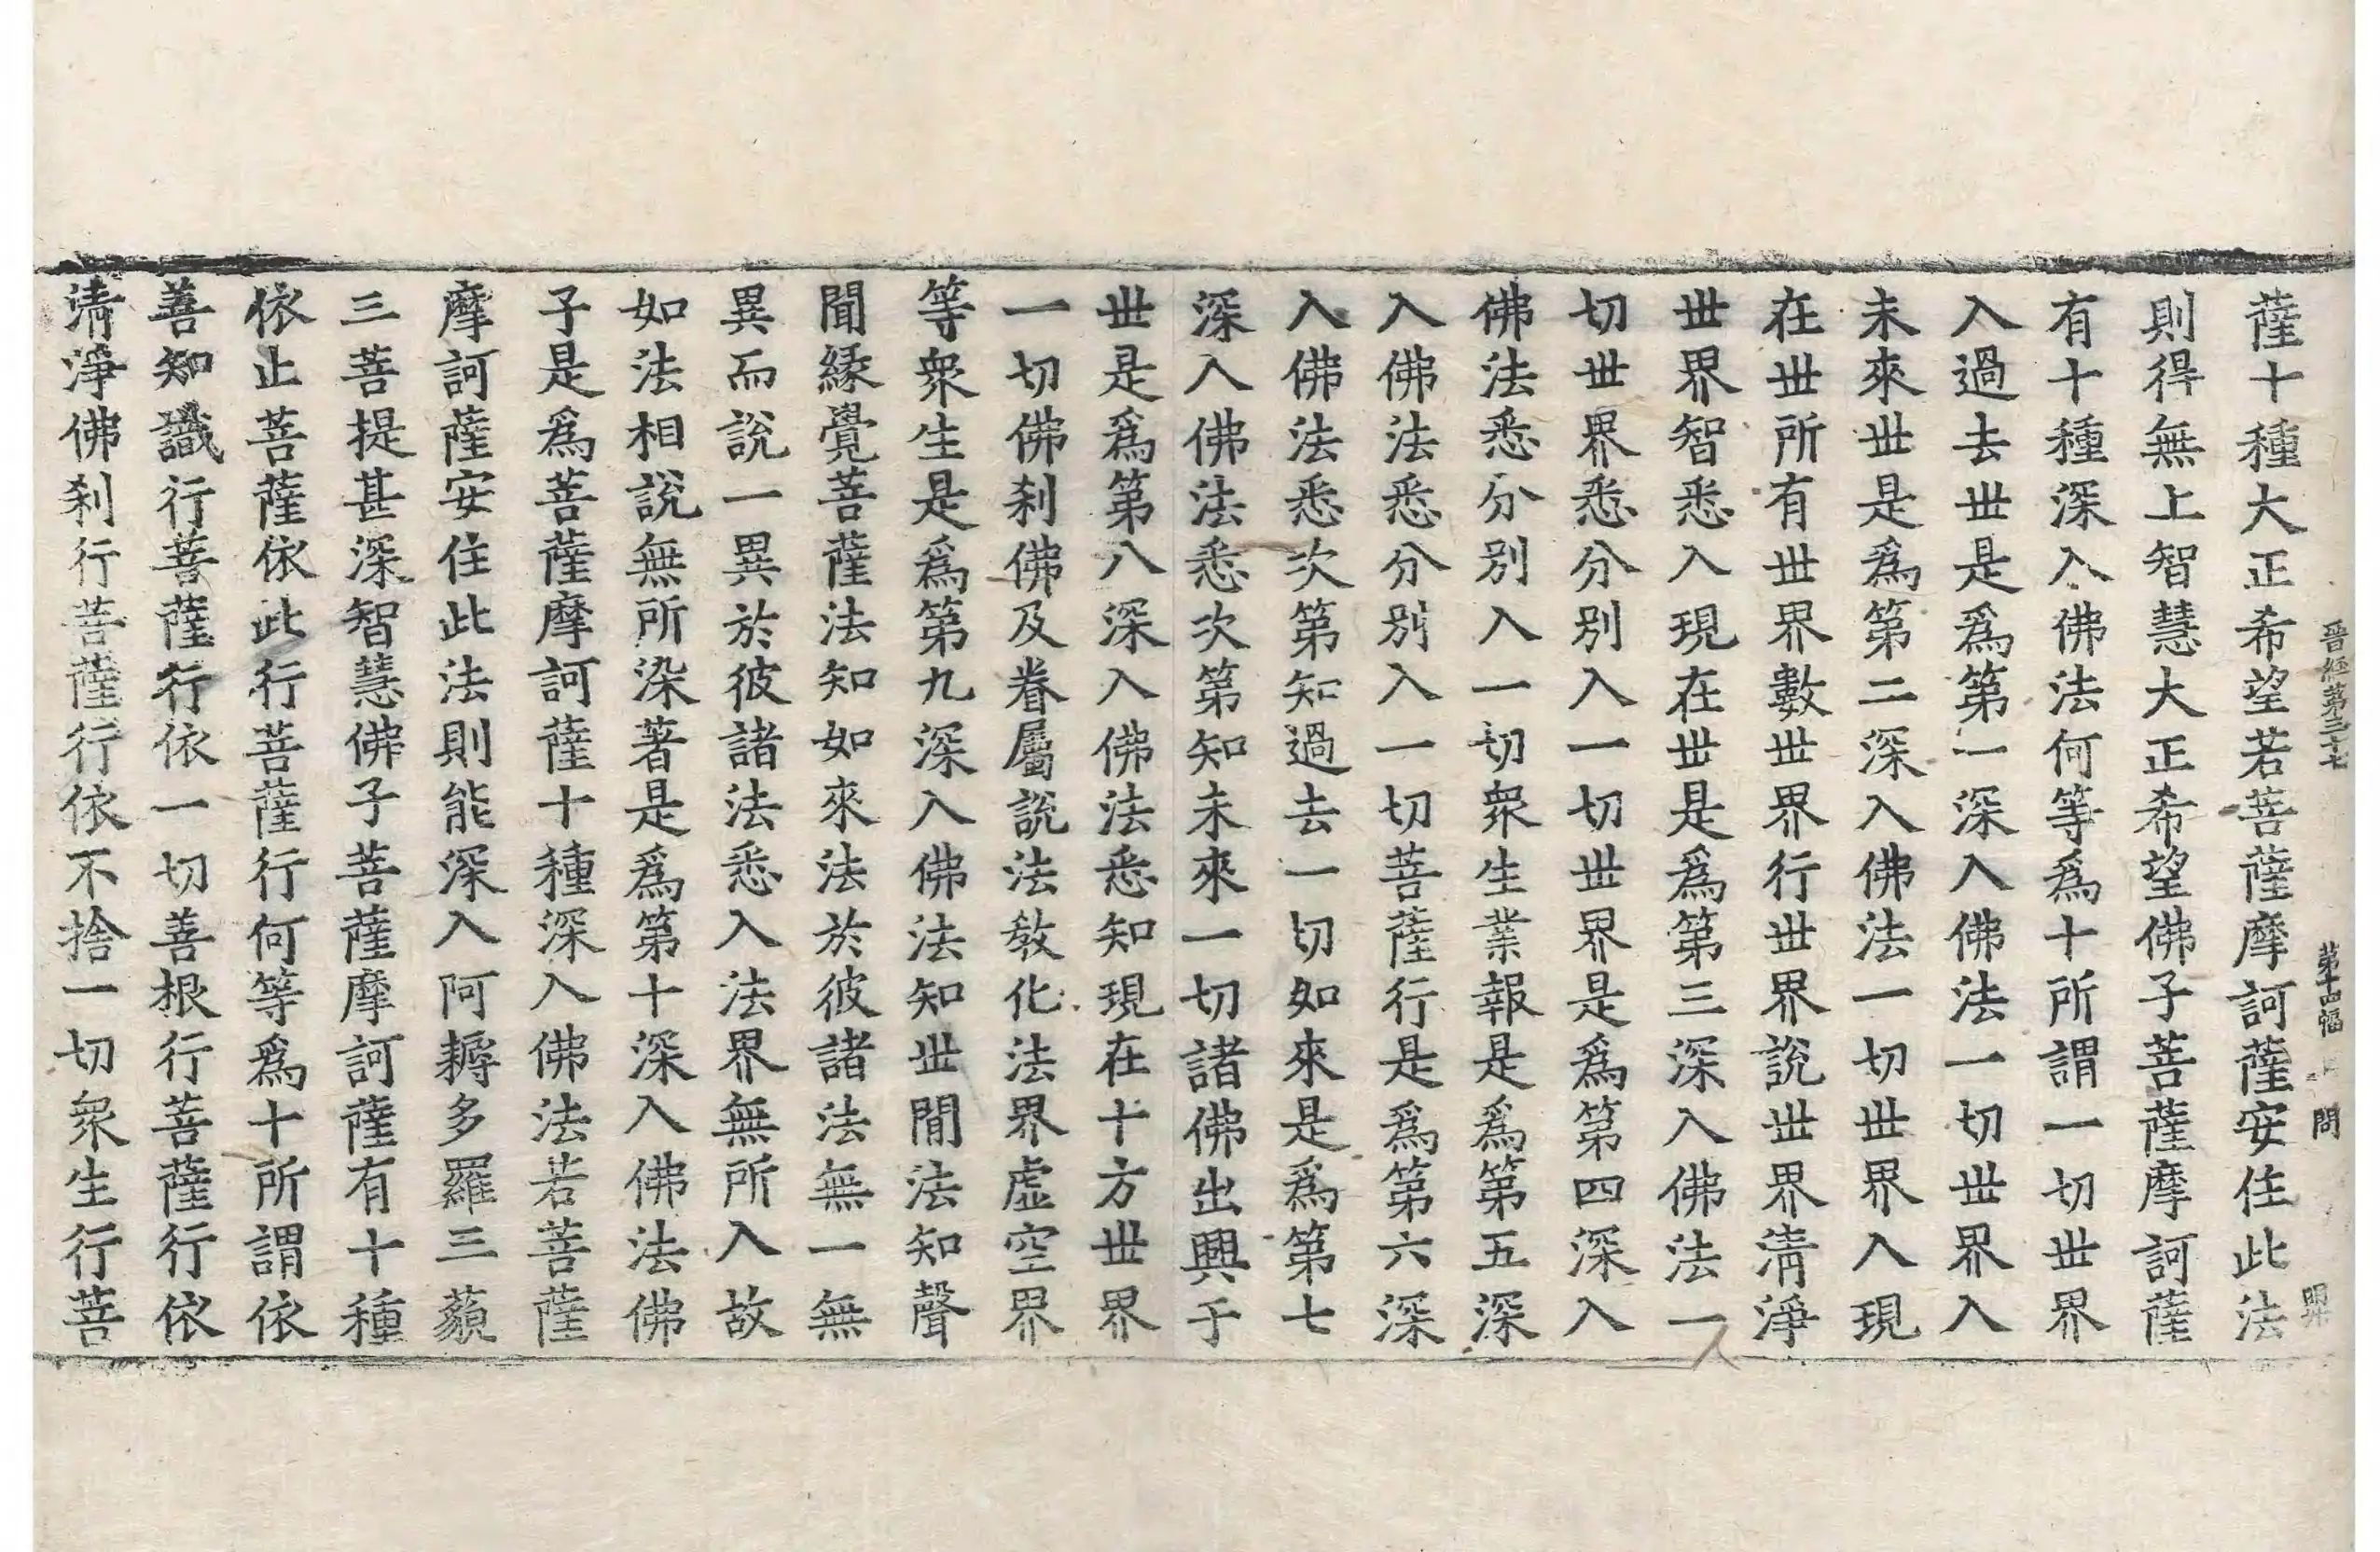 晉經第三十七 第十四幅 問 㒺
薩十種大正希望若菩薩摩訶薩安住此法
則得無上智慧大正希望佛子菩薩摩訶薩
有十種深入佛法何等爲十所謂一切世界
入過去世是爲第一深入佛法一切世界入
未來世是爲第二深入佛法一切世界入現
在世所有世界數世界行世界說世界淸淨
世界智悉入現在世是爲第三深入佛法一
切世界悉分別入一切世界是爲第四深入
佛法悉分別入一切衆生業報是爲第五深
入佛法悉分別入一切菩薩行是爲第六深
入佛法悉次第知過去一切如來是爲第七
深入佛法悉次第知未來一切諸佛出興于
世是爲第八深入佛法悉知現在十方世界
一切佛刹佛及眷屬說法敎化法界虛空界
等衆生是爲第九深入佛法知世閒法知聲
聞緣覺菩薩法知如來法於彼諸法無一無
異而說一異於彼諸法悉入法界無所入故
如法相說無所染著是爲第十深入佛法佛
子是爲菩薩摩訶薩十種深入佛法若菩薩
摩訶薩安住此法則能深入阿耨多羅三藐
三菩提甚深智慧佛子菩薩摩訶薩有十種
依止菩薩依此行菩薩行何等爲十所謂依
善知識行菩薩行依一切善根行菩薩行依
淸淨佛刹行菩薩行依不捨一切衆生行菩